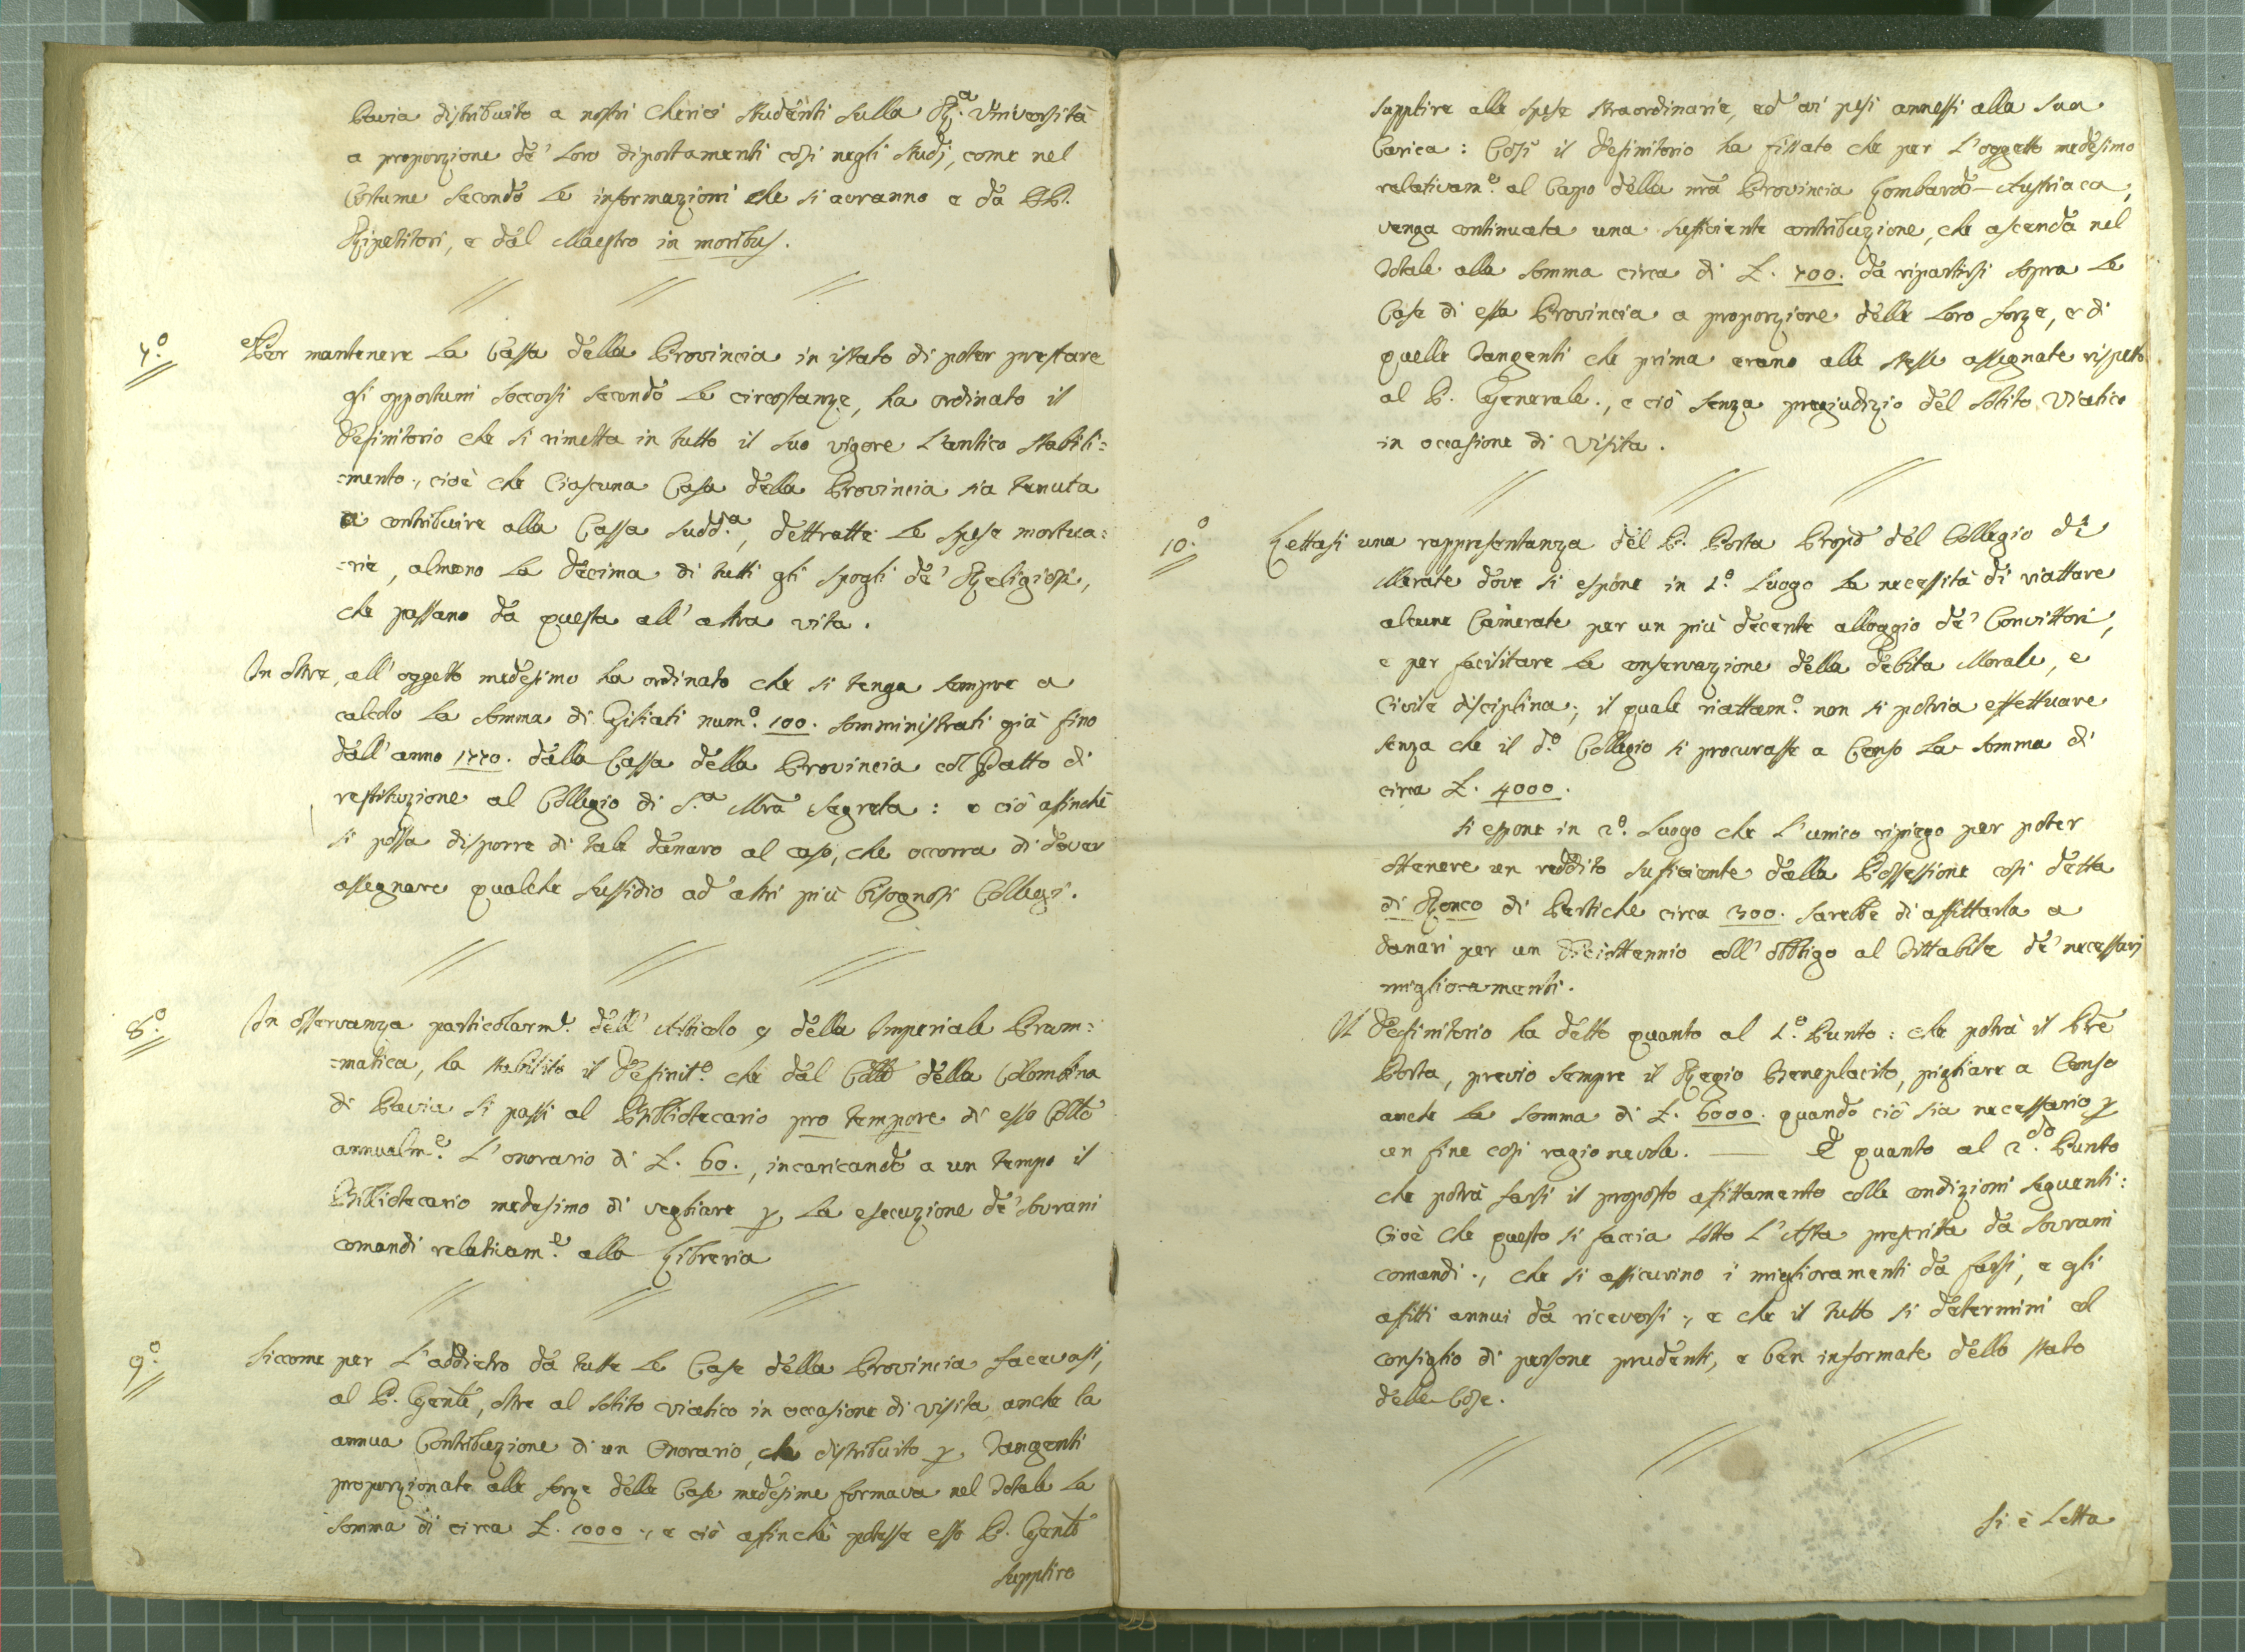 Pavia distribuito a nostri Cherici Studenti sulla R.a Università
a proporzione de' loro diportamenti così negli studj, come nel
Costume secondo le informazioni che si avranno e da PP.
Ripetitori, e dal Maestro in moribus.
7.o Per mantenere la Cassa della Provincia in istato di poter prestare
gli opportuni soccorsi secondo le circostanze, ha ordinato il
Definitorio che si rimetta in tutto il suo vigore l'antico stabili=
=mento., cioè che Ciascuna Casa della Provincia sia tenuta
a contribuire alla Cassa sudd.a, dettratte le spese mortua=
=rie, almeno la decima di tutti gli spogli de' Religiosi,
che passano da questa all'altra vita.
In oltre, all'oggetto medesimo ha ordinato che si tenga sempre a
calcolo la somma di Giliati num.o 100. somministrati già fino
dall'anno 1770. dalla Cassa della Provincia col Patto di
restituzione al Collegio di S.a Mra Segreta: e ciò affinchè
si possa disporre di tale danaro al caso, che occorra di dover
assegnare qualche sussidio ad altri più bisognosi Collegi.
8.o In osservanza particolarm.e dell'Articolo 9 della Imperiale Pram=
=matica, ha stabilito il Definit.o che dal Collo della Colombina
di Pavia si passi al Bibliotecario pro tempore di esso Collo
annualm.e L'onorario di £. 60., incaricando a un tempo il
Bibliotecario medesimo di vegliare p la esecuzione de' sovrani
comandi relativam.e alla Libreria
9.o Siccome per l'addietro da tutte le Case della Provincia facevasi,
al P. Genle, oltre al solito viatico in occasione di visita, anche la
annua Contribuzione di un Onorario, che distribuito p Tangenti
proporzionate alle forze delle Case medesime formava nel Totale la
somma di circa £. 1000., e ciò affinchè potesse esso P. Genle
supplire
supplire alle spese straordinarie, ed ai pesi annessi alla sua
Carica: Così il Definitorio ha fissato che per l'oggetto medesimo
relativam.e al Capo della nra Provincia Lombardo-Austriaca,
venga continuata una sufficiente contribuzione, che ascenda nel
Totale alla somma circa di £. 700. da ripartirsi sopra le
Case di essa Provincia a proporzione delle loro forze, e di
quelle Tangenti che prima erano alle stesse assegnate rispetto
al P. Generale., e ciò senza pregiudizio del solito Viatico
in occasione di Visita.
10.o Lettasi una rappresentanza del P. Porta Propo del Collegio di
Merate dove si espone in 1.o luogo la necessità di riattare
alcune Camerate per un più decente alloggio de' Convittori,
e per facilitare la conservazione della debita Morale, e
Civile disciplina., il quale riattam.o non si potria effettuare
senza che il d.o Collegio si procurasse a Censo la somma di
circa £. 4000.
Si espone in 2.o luogo che l'unico ripiego per poter
ottenere un reddito sufficiente dalla Possessione così detta
di Ronco di Pertiche circa 300. sarebbe di affittarla a
danari per un Diciottennio coll'obbligo al Fittabile de' necessarj
miglioramenti.
Il Definitorio ha detto quanto al 1.o Punto: che potrà il Pre
Porta, previo sempre il Regio Beneplacito, pigliare a Censo
anche la somma di £. 6000. quando ciò sia necessario p
un fine così ragionevole. — E quanto al 2.do Punto
che potrà farsi il proposto affittamento colle condizioni seguenti:
Cioè che questo si faccia sotto l'Asta prescritta da sovrani
comandi., che si assicurino i miglioramenti da farsi, e gli
affitti annui da riceversi., e che il tutto si determini al
consiglio di persone prudenti, e ben informate dello stato
delle Cose.
Si è Letta